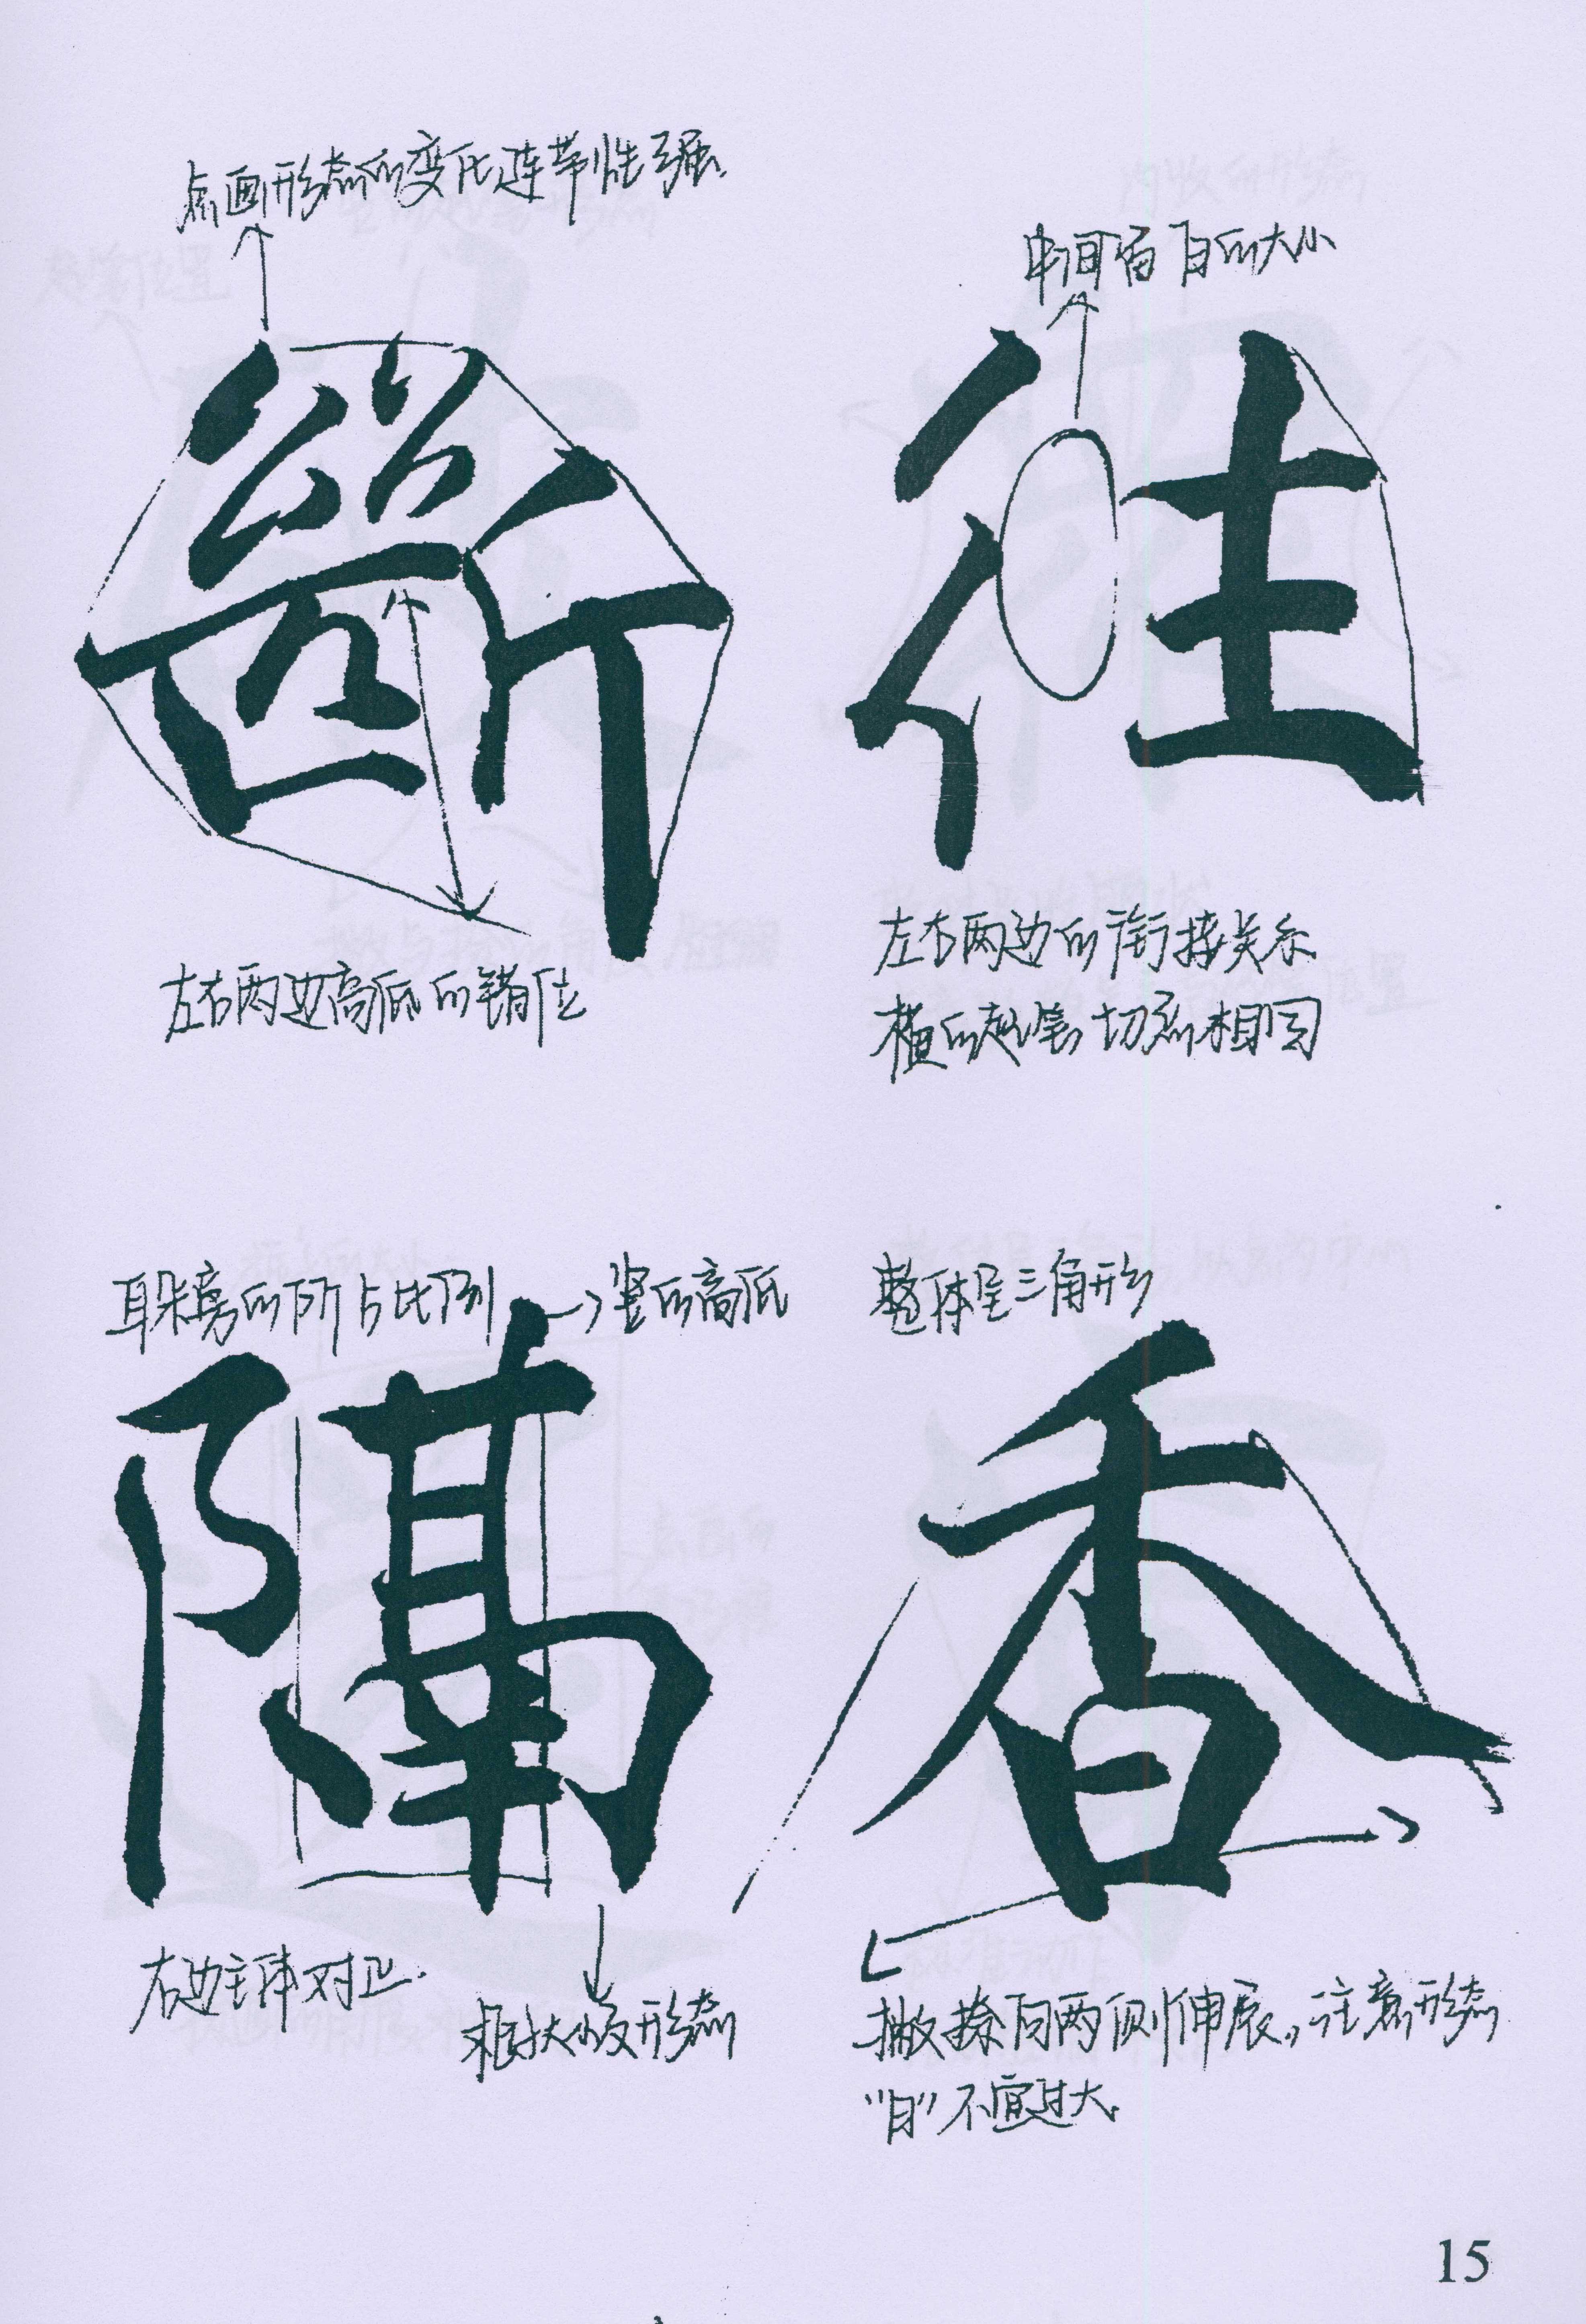 点画形态的变化连带性强
中间留白的大小
斷 往
左右两边高低的错位
左右两边的衔接关系
横的起笔切到相同
耳朵旁的所占比例 → 竖的高低
整体呈三角形
隔 香
右边主体对正.
粗大的形态
撇捺向两侧伸展，注意形态
“日”不宜过大
15